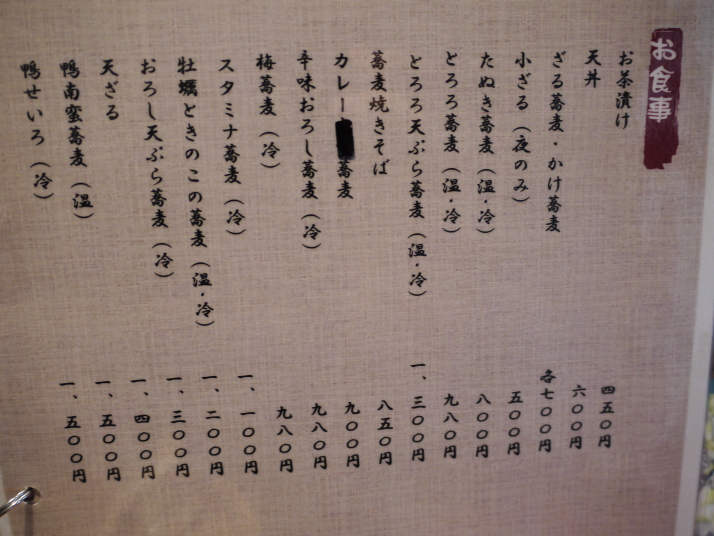 お食事
お茶漬け 四五〇円
天丼 六〇〇円
ざる蕎麦・かけ蕎麦 各七〇〇円
小ざる（夜のみ） 五〇〇円
たぬき蕎麦（温・冷） 八〇〇円
とろろ蕎麦（温・冷） 九八〇円
とろろ天ぷら蕎麦（温・冷） 一、三〇〇円
蕎麦焼きそば 八五〇円
カレー蕎麦 九〇〇円
辛味おろし蕎麦（冷） 九八〇円
梅蕎麦（冷） 九八〇円
スタミナ蕎麦（冷） 一、一〇〇円
牡蠣ときのこの蕎麦（温・冷） 一、二〇〇円
おろし天ぷら蕎麦（冷） 一、三〇〇円
天ざる 一、四〇〇円
鴨南蛮蕎麦（温） 一、五〇〇円
鴨せいろ（冷） 一、五〇〇円